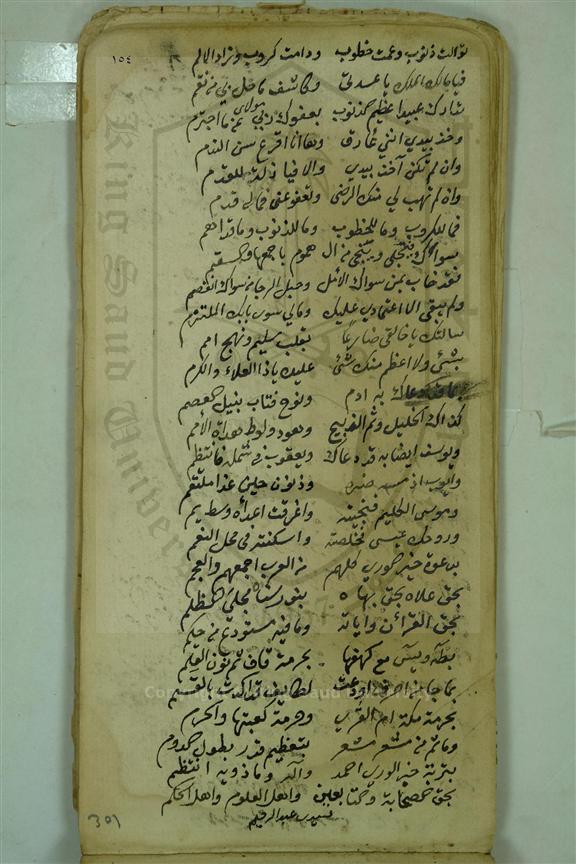 توالت ذنوب وعمت خطوب ودامت كروب وزاد الالم
فيا مالك الملك يا عمدتي وكاشف ما حل بي من نقم
تدارك عبيدا عظيم الذنوب بعفوك ربي مولاي عما اجترم
وخذ بيدي انني غارق وها انا اقرع سن الندم
وان لم تكن آخذ بيدي والا فيا زلة للقدم
وان لم تهب لي منك الرضى وتعفو عني فيا لي ندم
فما للكروب وما للخطوب وما للذنوب وما قد اهم
سواك وينجي من الهموم باجمعها
فقد خاب من سواك الأمل وحبل الرجا من سواك انفصم
ولم يبقى الا اعتمادي عليك ومالي سوى بابك الملتزم
سالتك يا خالقي ضارعا بقلب سليم ونهج امم
بشئ ولا اعظم منك شئ عليك يا ذا العلاء والكرم
دعاك به ادم ونوح فتاب بنيل العصم
كذاك الخليل وثم الذبيح وهود ولوط هداة الأمم
ويوسف ايضا به قد دعاك ويعقوب في شمله فانتظم
وايوب اذ مسه ضره وذنون حين غدا ملتقم
وموسى الكليم فنجيته واغرقت اعداه وسط يم
وروحك عيسى فخلصته واسكنته في محل النعم
بدعوة خير الورى كلهم من العرب اجمعهم والعجم
بحق علاه بحق بهاه بنور سناه مجلي الظلم
بحق القرآن واياته وما فيه مستودع من حكم
بطه ويس مع كهفها بحرمة قاف ثم نون القلم
بما جا اودعت لطايف
بحرمة مكة ام القرى وحرمة كعبتها والحرم
وما ثم من مشعر مشعر بتعظيم قدر بطول الدوم
بتربة خير الورى احمد وآله وما ذويه انتظم
بحق الصحابة والتابعين واهل العلوم واهل الحكم
لسيدي عبد الرحيم
١٥٤
301
King Saud University